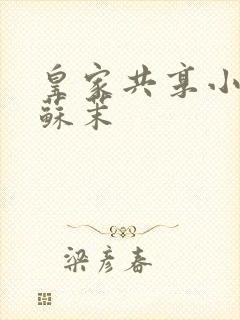 皇家共享小
蘇茉
梁彦春